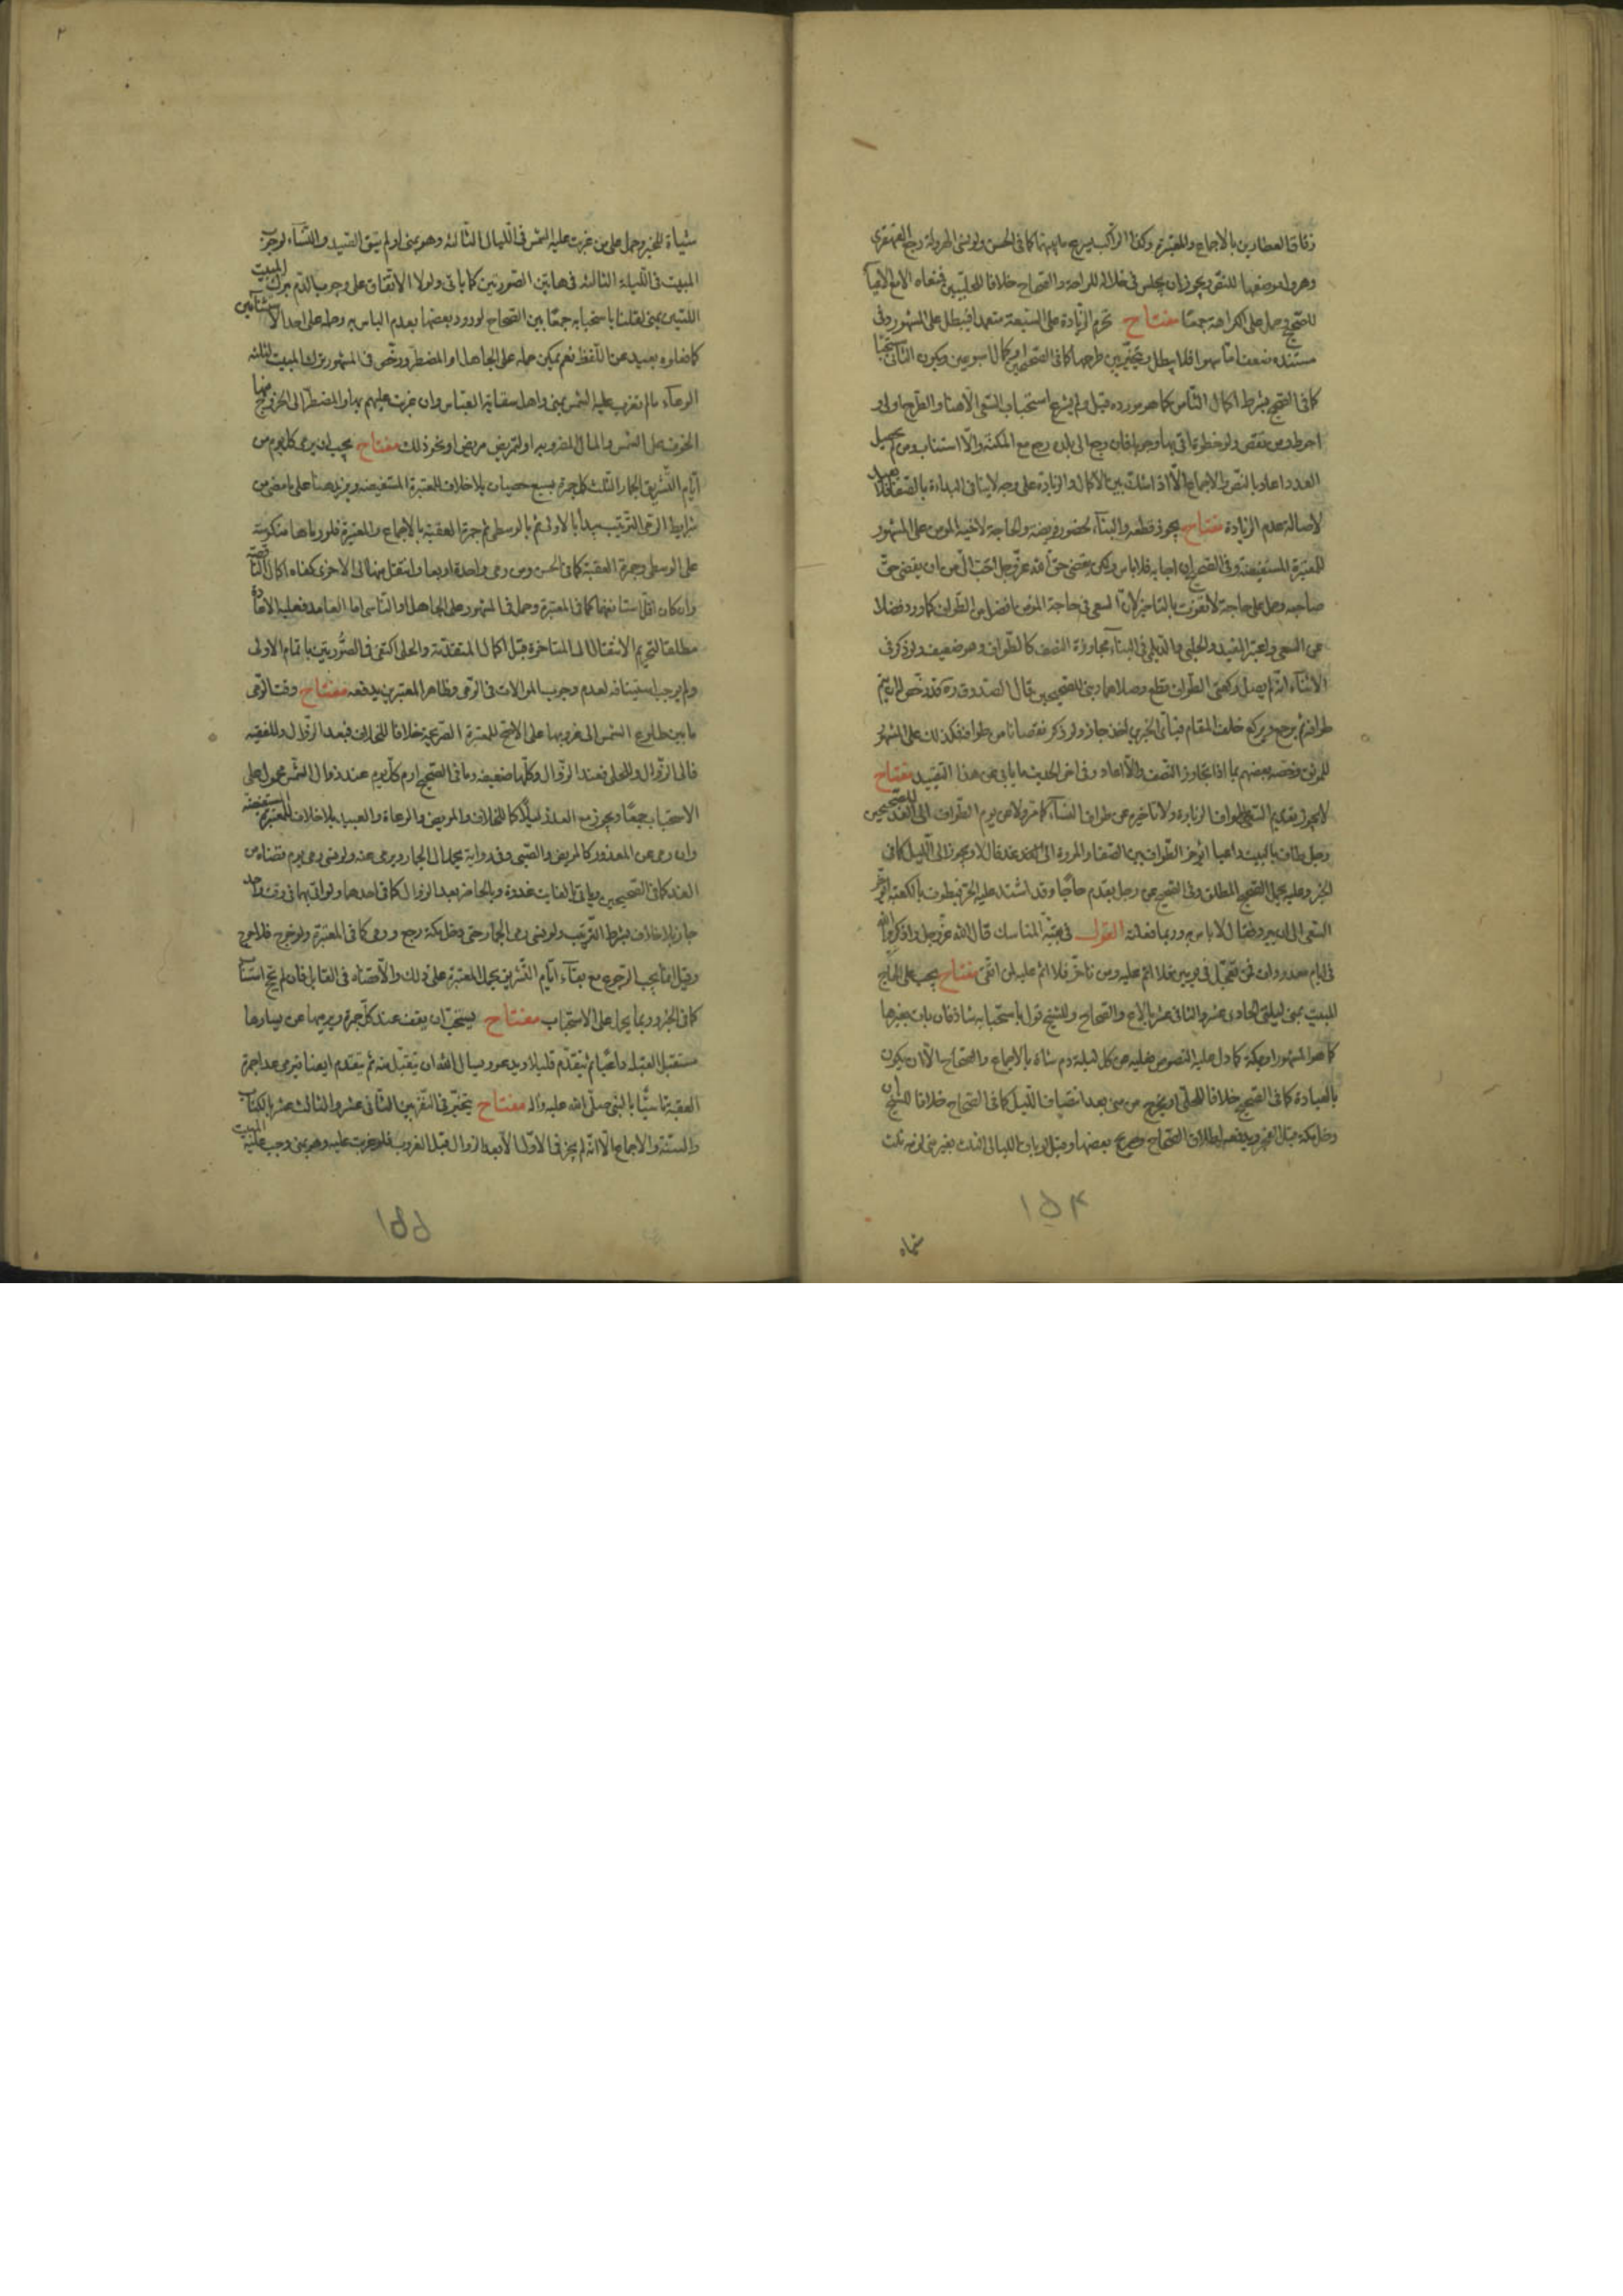 زقاق العطارين بالاجماع وللمعتبرة وكذا الراكب يسرع ما بينهما كما في الحسن ولو نسي الهرولة رجع القهقرى
وهرول موضعها للنص ويجوز ان يجلس في خلاله للراحة والصحاح خلافا للحلبيين فمنعاه الا مع الاعياء
للصحيح وحمل على الكراهة جمعا مفتاح تحرم الزيادة على السبعة متعمدا فيبطل على المشهور وفي
مستنده ضعف اما سهوا فلا يبطل ويتخير بين طرحها كما في الصحيحين واكمال اسبوعين ويكون الثاني مستحبا
كما في الصحيح بشرط اكمال الثامن كما هو مورده قيل ولم يشرع استحباب السعي الا هنا والطرح اولى و
احوط ومن نقص ولو خطوة اتى بها وجوبا فان رجع الى بلده رجع مع المكنة والا استناب ومن لم يحصل
العدد اعاد بالنص والاجماع الا اذا شك بين الاكمال والزيادة على وجه لا ينافي البداءة بالصفا فلا يعيد
لاصالة عدم الزيادة مفتاح يجوز قطعه والبناء لحضور فريضة والحاجة لاخيه المومن على المشهور
للمعتبرة المستفيضة وفي الصحيح ان اجابه فلا باس ولكن يقضي حق الله عز وجل احب الي من ان يقضي حق
صاحبه وحمل على حاجة لا تفوت بالتاخير لان السعي في حاجة المؤمن افضل من الطواف كما ورد فضلا
عن السعي واعتبر المفيد والحلبي والديلمي في البناء مجاوزة النصف كالطواف وهو ضعيف ولو ذكر في
الاثناء انه لم يصل ركعتي الطواف قطع وصلاهما وبنى للصحيحين قال الصدوق ره وقد رخص له ان يتم
طوافه ثم يرجع ويركع خلف المقام فباي الخبرين اخذ جاز ولو ذكر نقصانا من طوافه فكذلك على المشهور
للموثق وخصه بعضهم بما اذا تجاوز النصف والا اعاد وفي اخر الحديث ما يابى عن هذا التقييد مفتاح
لا يجوز تقديم السعي على طواف الزيارة ولا تاخيره عن طواف النساء كما مر ولا عن يوم الطواف الى الغد للصحيحين
رجل طاف بالبيت فاعيا ايؤخر الطواف بين الصفا والمروة الى غد قال لا ويجوز الى الليل كما في
الخبر وعليه يحمل الصحيح المطلق وفي الصحيح عن رجل يقدم حاجا وقد اشتد عليه الحر فيطوف بالكعبة ايؤخر
السعي الى ان يبرد فقال لا باس به وربما فعلته القول في بقية المناسك قال الله عز وجل واذكروا الله
في ايام معدودات فمن تعجل في يومين فلا اثم عليه ومن تاخر فلا اثم عليه لمن اتقى مفتاح يجب على الحاج
المبيت بمنى ليلتي الحادي عشر والثاني عشر بالاجماع والصحاح وللشيخ قول باستحبابه شاذ فان بات بغيرها
كما هو المشهور او بمكة كما دل عليه النصوص فعليه عن كل ليلة دم شاة بالاجماع والصحاح الا ان يكون
بالعبادة كما في الصحيح خلافا للحلي او يخرج من منى بعد انتصاف الليل كما في الصحاح خلافا للشيخ ان
دخل مكة قبل الفجر ويدفعه اطلاق الصحاح وصريح بعضها وقيل لو بات الليالي الثلث بغير منى لزمه ثلث
١٥٤
شياه
٢
شياة للخبر وحمل على من غربت عليه الشمس في الليلة الثالثة وهو بمنى او لم يتق الصيد والنساء لوجوب
المبيت في الليلة الثالثة في هاتين الصورتين كما ياتي ولولا الاتفاق على وجوب الدم بترك المبيت
الليلتين بمنى لقلنا باستحبابه جمعا بين الصحاح لورود بعضها بعدم الباس به وحمله على احد الاستثنائين
كما فعلوه بعيد عن اللفظ نعم يمكن حمله على الجاهل او المضطر ورخص في المشهور ترك المبيت لثلثة
الرعاء ما لم تغرب عليه الشمس بمنى واهل سقاية العباس وان غربت عليهم بها والمضطر الى الخروج منها
الخوف على النفس والمال الضروريه او لتمريض مريض او نحو ذلك مفتاح يجب ان يرمي كل يوم من
ايام التشريق الجمار الثلث كل جمرة بسبع حصيات بلا خلاف للمعتبرة المستفيضة ويزيد هنا على ما مضى من
شرايط الرمي الترتيب يبدأ بالاولى ثم بالوسطى ثم جمرة العقبة بالاجماع والمعتبرة فلو رماها منكوسة
على الوسطى وجمرة العقبة كما في الحسن ومن رمى واحدة اربعا وانتقل منها الى الاخرى كفاه اكمال الناقصة
وان كان اقل استانفها كما في المعتبرة وحمل في المشهور على الجاهل او الناسي اما العامد فعليه الاعادة
مطلقا لتحريم الانتقال الى المتاخرة قبل اكمال المتقدمة والحلي اكتفى في الصورتين باتمام الاولى
ولم يوجب استينافه لعدم وجوب الموالات في الرمي وظاهر المعتبرين يدفعه مفتاح وقت الرمي
ما بين طلوع الشمس الى غروبها على الاصح للمعتبرة الصريحة خلافا للخلاف فبعد الزوال وللفقيه
فالى الزوال وللحلي فعند الزوال وكلها ضعيفة وما في الصحيح ارم كل يوم عند زوال الشمس محمول على
الاستحباب جمعا ويجوز مع العذر ليلا كالخائف والمريض والرعاة والعبيد بلا خلاف للمعتبرة المستفيضة
وان رمى عن المعذور كالمريض والصبي وفي رواية يحمل الى الجمار ويرمى عنه ولو نسي رمي يوم قضاه من
الغد كما في الصحيحين وياتي بالفائت غدوة وبالحاضر بعد الزوال كما في احدهما ولو اتى بهما في وقت واحد
جاز بلا خلاف بشرط الترتيب ولو نسي رمي الجمار حتى دخل مكة رجع ورمى كما في المعتبرة ولو خرج فلا حرج
وقيل انما يجب الرجوع مع بقاء ايام التشريق بحمل المعتبرة على ذلك والا قضاه في القابل فان لم يحج استناب
كما في الخبر وربما يحمل على الاستحباب مفتاح يستحب ان يقف عند كل جمرة ويرميها عن يسارها
مستقبل القبلة داعيا ثم يتقدم قليلا ويدعو ويسال الله ان يتقبل منه ثم يتقدم ايضا فيرمي عدا جمرة
العقبة تاسيا بالنبي صلى الله عليه واله مفتاح يتخير في النفرين الثاني عشر والثالث عشر بالكتاب
والسنة والاجماع الا انه لم يجز في الاول الا بعد الزوال قبل الغروب فلو غربت عليه وهو بمنى وجب عليه المبيت
١٥٥